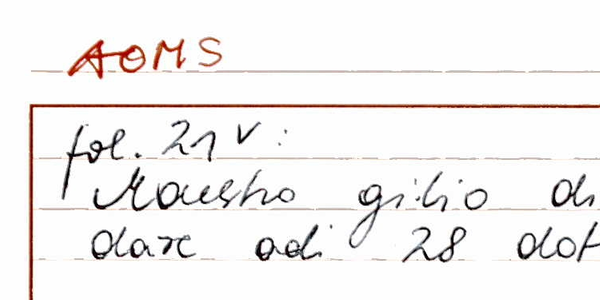 AOMS
fol. 21 v:
Maestro gilio di
dare adi 28 dot